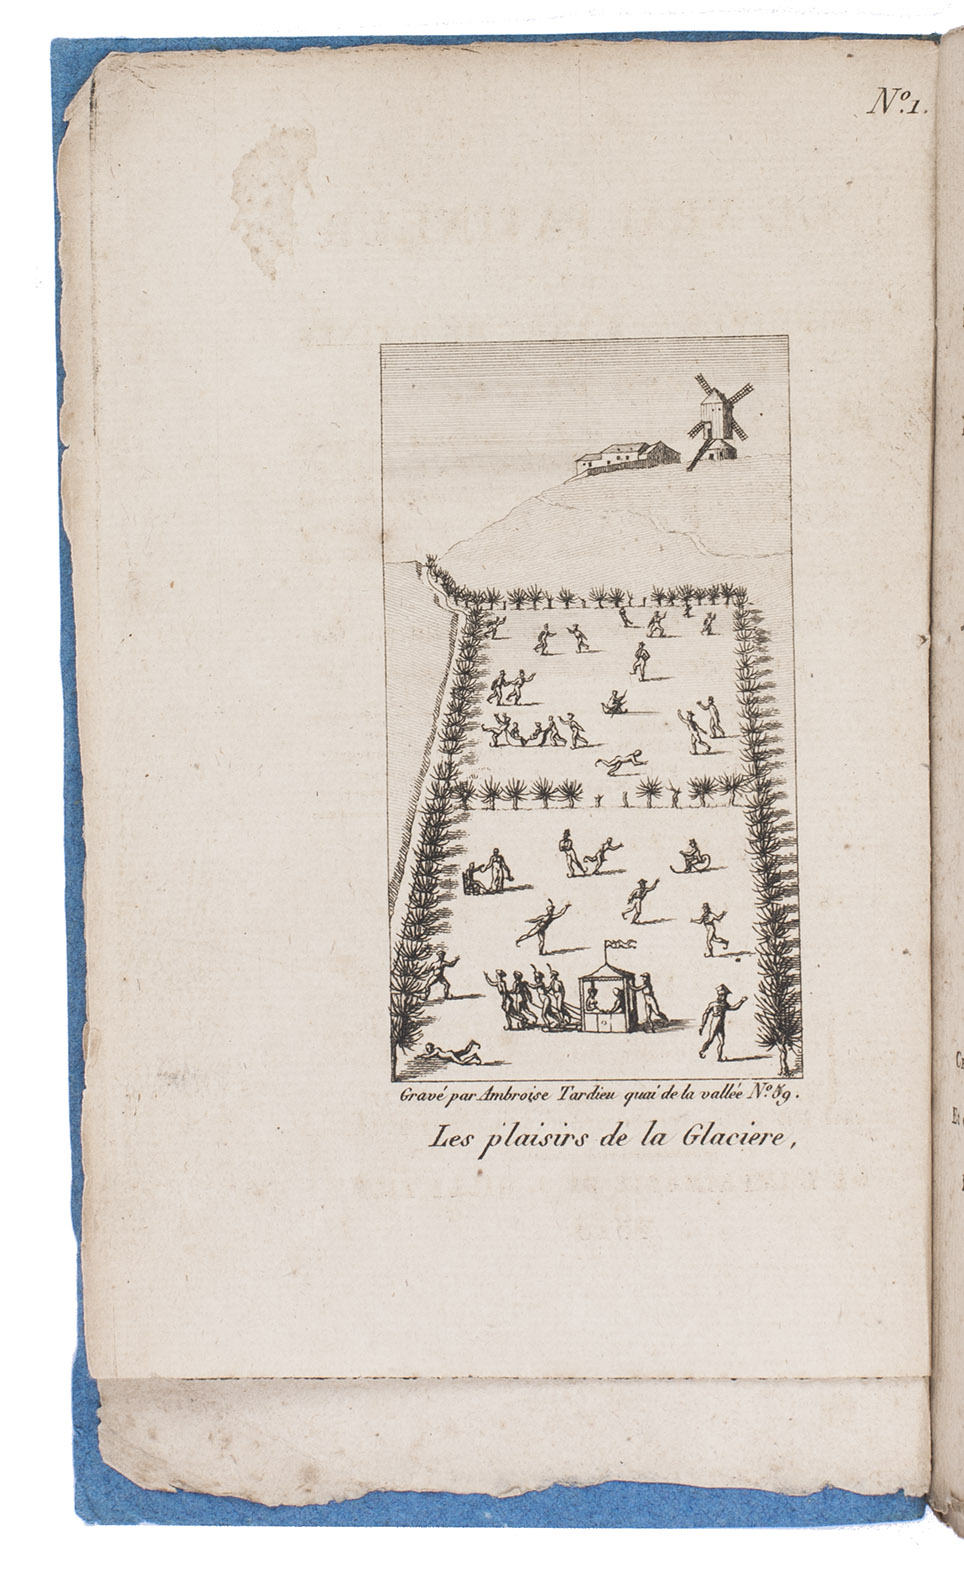 Nº.1.
Gravé par Ambroise Tardieu quai de la vallée Nº. 59.
Les plaisirs de la Glaciere,